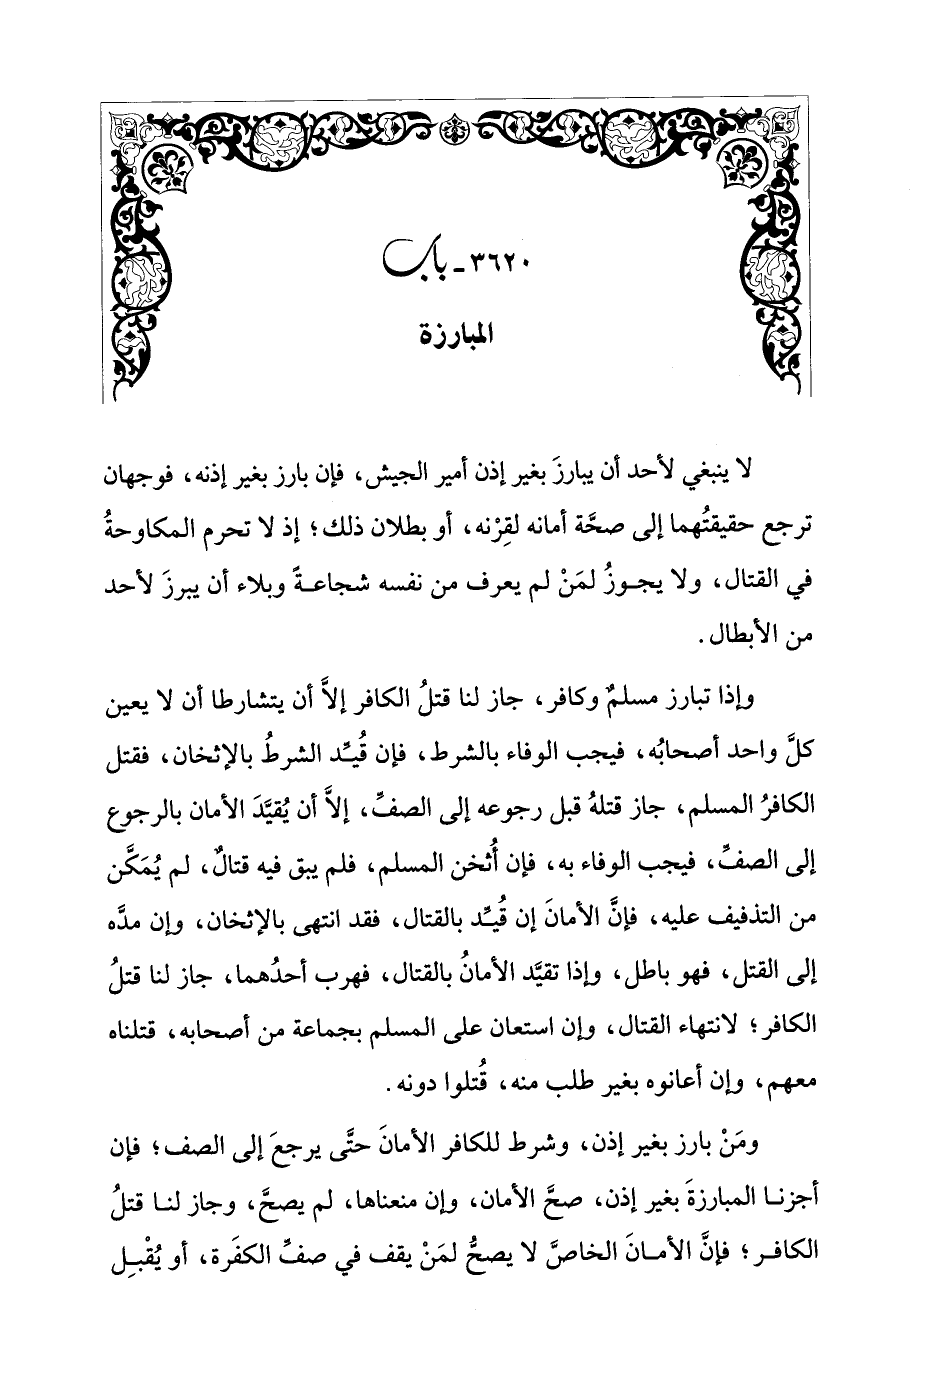 ٣٦٢٠ - باب
المبارزة
لا ينبغي لأحد أن يبارزَ بغير إذن أمير الجيش، فإن بارز بغير إذنه، فوجهان
ترجع حقيقتُهما إلى صحَّة أمانه لقِرْنه، أو بطلان ذلك؛ إذ لا تحرم المكاوحةُ
في القتال، ولا يجوزُ لمَنْ لم يعرف من نفسه شجاعةً وبلاء أن يبرزَ لأحد
من الأبطال.
وإذا تبارز مسلمٌ وكافر، جاز لنا قتلُ الكافر إلاَّ أن يتشارطا أن لا يعين
كلَّ واحد أصحابُه، فيجب الوفاء بالشرط، فإن قُيِّد الشرطُ بالإثخان، فقتل
الكافرُ المسلم، جاز قتلهُ قبل رجوعه إلى الصفِّ، إلاَّ أن يُقيَّدَ الأمان بالرجوع
إلى الصفِّ، فيجب الوفاء به، فإن أُثخن المسلم، فلم يبق فيه قتالٌ، لم يُمَكَّن
من التذفيف عليه، فإنَّ الأمانَ إن قُيِّد بالقتال، فقد انتهى بالإثخان، وإن مدَّه
إلى القتل، فهو باطل، وإذا تقيَّد الأمانُ بالقتال، فهرب أحدُهما، جاز لنا قتلُ
الكافر؛ لانتهاء القتال، وإن استعان على المسلم بجماعة من أصحابه، قتلناه
معهم، وإن أعانوه بغير طلب منه، قُتلوا دونه.
ومَنْ بارز بغير إذن، وشرط للكافر الأمانَ حتَّى يرجعَ إلى الصف؛ فإن
أجزنا المبارزةَ بغير إذن، صحَّ الأمان، وإن منعناها، لم يصحَّ، وجاز لنا قتلُ
الكافر؛ فإنَّ الأمانَ الخاصَّ لا يصحُّ لمَنْ يقف في صفِّ الكفَرة، أو يُقْبِل